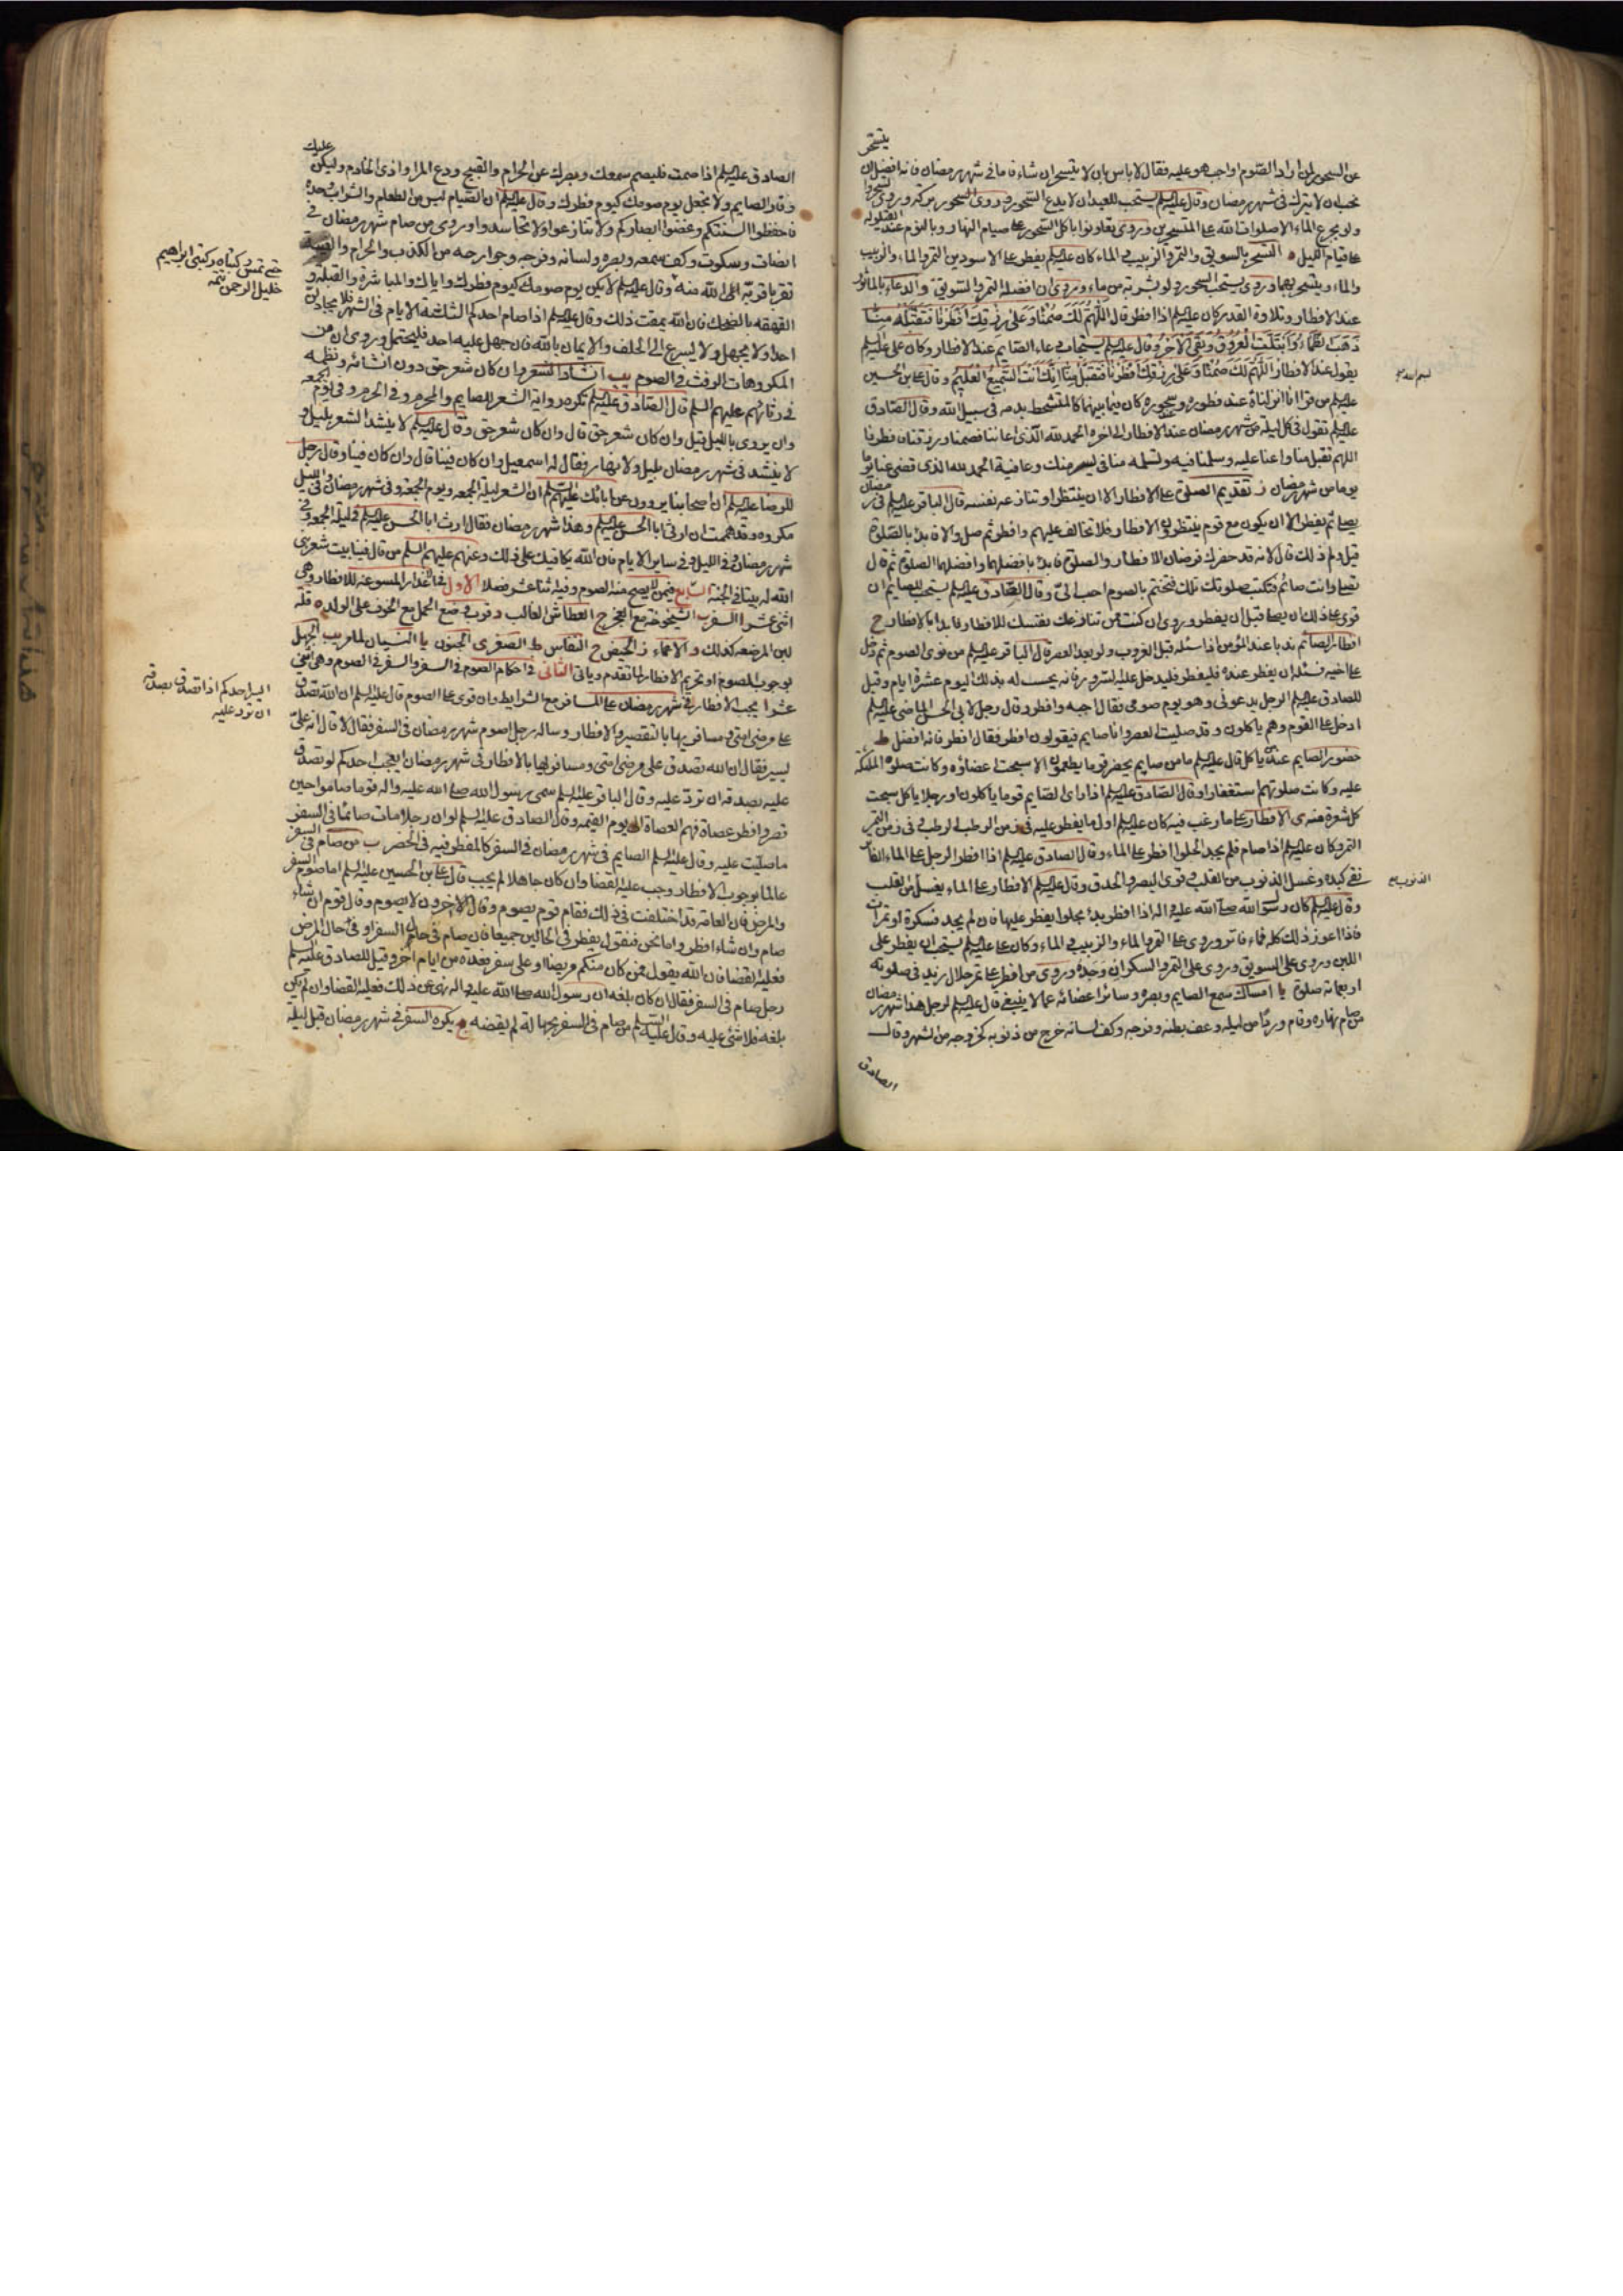 عن السحور لمن اراد الصوم اواجب هو عليه فقال لا باس بان لا يتسحر ان شاء فاما في شهر رمضان فانه افضل ان يتسحر
نحب ان لا يترك في شهر رمضان وقال عليه السلم يستحب للعبد ان لا يدع السحور وروى السحور بركة وروى تسحروا
ولو بجرع الماء الا صلوات الله على المتسحرين وروى تعاونوا باكل السحور على صيام النهار وبالنوم عند القيلولة
على قيام الليل ه التسحر بالسويق والتمر والزبيب والماء كان عليه السلم يفطر على الاسودين التمر والماء والزبيب
والماء ويتسحر بهما وروى يستحب السحور ولو بشربة من ماء وروى ان افضله التمر والسويق و الدعاء بالماثور
عند الافطار وتلاوة القدر كان عليه السلم اذا افطر قال اللهم لك صمنا وعلى رزقك افطرنا فتقبله منا
ذهب الظماء وابتلت العروق وبقى الاجر وقال عليه السلم يستجاب دعاء الصايم عند الافطار وكان على عليه السلم
يقول عند الافطار اللهم لك صمنا وعلى رزقك افطرنا فتقبل منا انك انت السميع العليم وقال على بن الحسين
عليه السلم من قرا انا انزلناه عند فطوره وسحوره كان فيما بينهما كالمتشحط بدمه في سبيل الله وقال الصادق
عليه السلم تقول في كل ليلة من شهر رمضان عند الافطار الى اخره الحمد لله الذى اعاننا فصمنا ورزقنا فافطرنا
اللهم تقبل منا واعنا عليه وسلمنا فيه وتسلمه منا في يسر منك وعافية الحمد لله الذى قضى عنا يوما
يوما من شهر رمضان ز تقديم الصلوة على الافطار الا ان ينتظر او تنازعه نفسه قال الباقر عليه السلم في رمضان
يصلى ثم يفطر الا ان يكون مع قوم ينتظرون الافطار فلا تخالف عليهم وافطر ثم صل والا فابدء بالصلوة
قيل ولم ذلك قال لانه قد حضرك فرضان الافطار والصلوة فابدء بافضلهما وافضلهما الصلوة ثم قال
تصلى وانت صائم فتكتب صلوتك تلك فتختم بالصوم احب الى وقال الصادق عليه السلم يستحب للصايم ان
قوى على ذلك ان يصلى قبل ان يفطر وروى ان كنت ممن تنازعك نفسك للافطار فابدا بالافطار ح
افطار الصائم ندبا عند المؤمن اذا سئله قبل الغروب ولو بعد العصر قال الباقر عليه السلم من نوى الصوم ثم دخل
على اخيه فسئله ان يفطر عنده فليفطر فليدخل عليه السرور فانه يحسب له بذلك اليوم عشرة ايام وقيل
للصادق عليه السلم الرجل يدعونى وهو يوم صومى فقال اجبه وافطر وقال رجل لابى الحسن الماضى عليه السلم
ادخل على القوم وهم ياكلون وقد صليت العصر وانا صايم فيقولون افطر فقال افطر فانه افضل ط
حضور الصايم عند من ياكل قال عليه السلم ما من صايم يحضر قوما يطعمون الا سبحت اعضاؤه وكانت صلوة الملئكة
عليه وكانت صلوتهم استغفارا وقال الصادق عليه السلم اذا راى الصايم قوما ياكلون او رجلا ياكل سبحت
كل شعرة منه ى الافطار على ما رغب فيه كان عليه السلم اول ما يفطر عليه في زمن الرطب الرطب وفى زمن التمر
التمر وكان عليه السلم اذا صام فلم يجد الحلوا افطر على الماء وقال الصادق عليه السلم اذا افطر الرجل على الماء الفاتر
نقى كبده وغسل الذنوب من القلب وقوى البصر والحدق وقال عليه السلم الافطار على الماء يغسل من القلب
وقال عليه السلم كان رسول الله صلى الله عليه واله اذا افطر بدء بحلوا يفطر عليها فان لم يجد فسكرة او تمرات
فاذا اعوز ذلك كله فماء فاتر وروى على التمر والماء والزبيب والماء وكان على عليه السلم يستحب ان يفطر على
اللبن وروى على السويق وروى على التمر والسكر ان وجده وروى من افطر على تمر حلال زيد في صلوته
اربعمائة صلوة يا امساك سمع الصايم وبصره وسائر اعضائه عما لا ينبغي قال عليه السلم لرجل هذا شهر رمضان
من صام نهاره وقام وردا من ليله وعف بطنه وفرجه وكف لسانه خرج من ذنوبه كخروجه من الشهر وقال
الصادق
بسم الله
الذنوب
الصادق عليه السلم اذا صمت فليصم سمعك وبصرك عن الحرام والقبيح ودع المراء واذى الخادم وليكن عليك
وقار الصايم ولا تجعل يوم صومك كيوم فطرك وقال عليه السلم ان الصيام ليس من الطعام والشراب وحده
فاحفظوا السنتكم وغضوا ابصاركم ولا تنازعوا ولا تحاسدوا وروى من صام شهر رمضان في
انصات وسكوت وكف سمعه وبصره ولسانه وفرجه وجوارحه من الكذب والحرام والغيبة
تقربا قربه الله منه وقال عليه السلم لا يكن يوم صومك كيوم فطرك واياك والمباشرة والقبلة و
القهقهة بالضحك فان الله يمقت ذلك وقال عليه السلم اذا صام احدكم الثلثة الايام في الشهر فلا يجادلن
احدا ولا يجهل ولا يسرع الى الحلف والايمان بالله فان جهل عليه احد فليحتمل وروى ان من
المكروهات الرفث في الصوم يب انشاد الشعر وان كان شعر حق دون انشائه ونظمه
في رثائهم عليهم السلم قال الصادق عليه السلم تكره رواية الشعر للصايم والمحرم وفي الحرم وفي يوم الجمعه
وان يروى بالليل قيل وان كان شعر حق قال وان كان شعر حق وقال عليه السلم لا ينشد الشعر بليل و
لا ينشد في شهر رمضان بليل ولا نهار فقال له اسمعيل وان كان فينا قال وان كان فينا وقال رجل
للرضا عليه السلم ان اصحابنا يروون عن ابائك عليهم السلم ان الشعر ليلة الجمعه ويوم الجمعة وفي شهر رمضان وفي الليل
مكروه وقد هممت ان ارثى ابا الحسن عليه السلم وهذا شهر رمضان فقال ارث ابا الحسن عليه السلم في ليلة الجمعة وفي
شهر رمضان وفي الليل وفي ساير الايام فان الله يكافيك على ذلك وعنهم عليهم السلم من قال فينا بيت شعر بنى
الله له بيتا في الجنة الرابع فيمن لا يصح منه الصوم وفيه اثنا عشر فصلا الاول في الاعذار المسوغه للافطار وهي
اثنى عشر ا السفر ب الشيخوخه مع العجز ج العطاش الغالب د قرب وضع الحمل مع الخوف على الولد ه قلة
لبن المرضعه كذلك و الاغماء ز الحيض ح النفاس ط الصغر ى الجنون يا النسيان لما مر يب الجهل
بوجوب الصوم او تحريم الافطار لما تقدم وياتى الثانى في احكام الصوم في السفر والسفر في الصوم وهي اثنى
عشر ا يجب الافطار في شهر رمضان على المسافر مع الشرايط وان قوى على الصوم قال عليه السلم ان الله تصدق
على مرضى امتى ومسافريها بالتقصير والافطار وساله رجل اصوم شهر رمضان في السفر فقال لا قال انه على
يسير فقال ان الله تصدق على مرضى امتى ومسافريها بالافطار في شهر رمضان ايعجب احدكم لو تصدق
عليه بصدقة ان ترد عليه وقال الباقر عليه السلم سمى رسول الله صلى الله عليه واله قوما صاموا حين
قصر وافطر عصاة فهم العصاة الى يوم القيمه وقال الصادق عليه السلم لو ان رجلا مات صائما في السفر
ما صليت عليه وقال عليه السلم الصايم في شهر رمضان في السفر كالمفطر فيه في الحضر ب من صام في السفر
عالما بوجوب الافطار وجب عليه القضا وان كان جاهلا لم يجب قال على بن الحسين عليه السلم اما صوم السفر
والمرض فان العامة قد اختلفت في ذلك فقام قوم يصوم وقال الاخرون لا يصوم وقال قوم ان شاء
صام وان شاء افطر واما نحن فنقول يفطر في الحالين جميعا فان صام في حال السفر او في حال المرض
فعليه القضا فان الله يقول فمن كان منكم مريضا او على سفر فعدة من ايام اخر وقيل للصادق عليه السلم
رجل صام في السفر فقال ان كان بلغه ان رسول الله صلى الله عليه واله نهى عن ذلك فعليه القضا وان لم يكن
بلغه فلا شئ عليه وقال عليه السلم من صام في السفر بجهالة لم يقضه ج يكره السفر في شهر رمضان قبل ليلة
حتى تمس ركبتاه ركبتى ابراهيم
خليل الرحمن
ايسر احدكم اذا تصدق بصدقة
ان ترد عليه